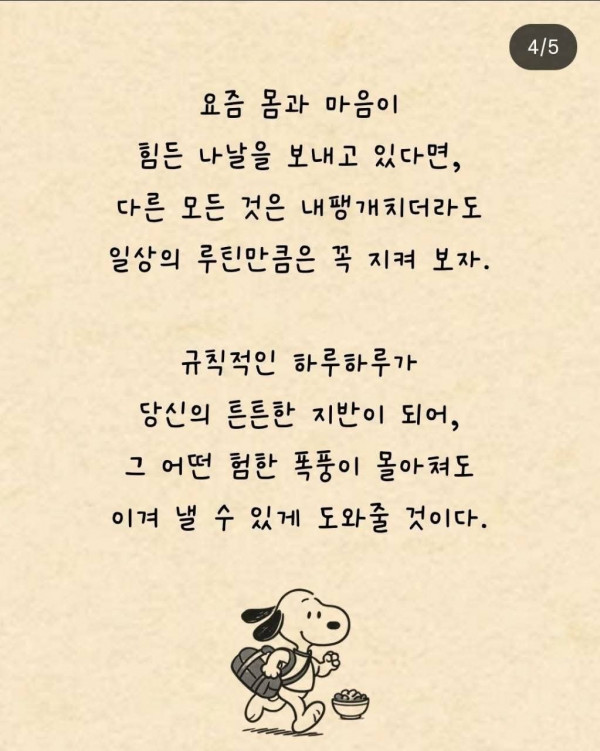 4/5
요즘 몸과 마음이
힘든 나날을 보내고 있다면,
다른 모든 것은 내팽개치더라도
일상의 루틴만큼은 꼭 지켜 보자.
규칙적인 하루하루가
당신의 튼튼한 지반이 되어,
그 어떤 험한 폭풍이 몰아쳐도
이겨 낼 수 있게 도와줄 것이다.